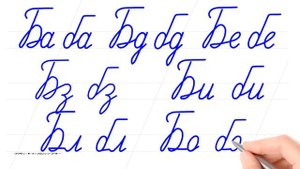 Ба ба Бд бд Бе бе
Бз бз Би би
Бл бл Бо бо